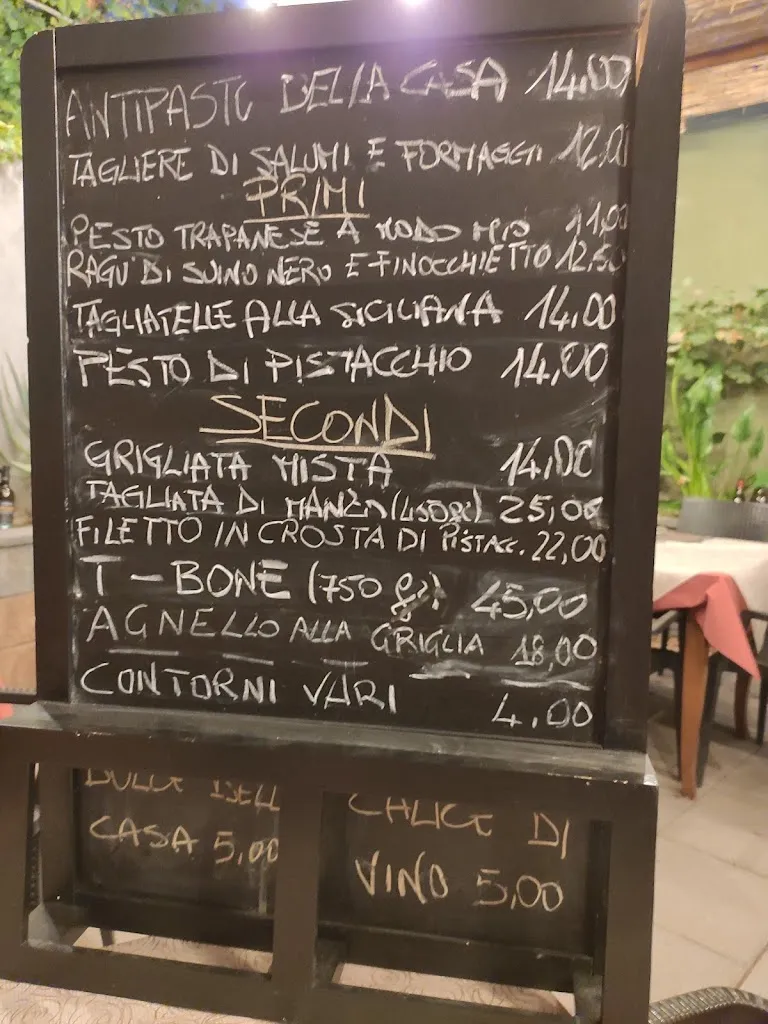 ANTIPASTO DELLA CASA 14,00
TAGLIERE DI SALUMI E FORMAGGI 12,00
PRIMI
PESTO TRAPANESE A MODO MIO 11,00
RAGU' DI SUINO NERO E FINOCCHIETTO 12,50
TAGLIATELLE ALLA SICILIANA 14,00
PESTO DI PISTACCHIO 14,00
SECONDI
GRIGLIATA MISTA 14,00
TAGLIATA DI MANZO (450gr) 25,00
FILETTO IN CROSTA DI PISTACC. 22,00
T-BONE (750 gr) 45,00
AGNELLO ALLA GRIGLIA 18,00
CONTORNI VARI 4,00
DOLCE DELL
CASA 5,00
CALICE DI
VINO 5,00